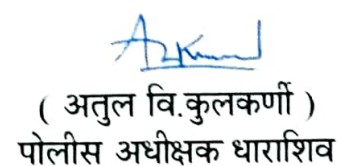 ( अतुल वि.कुलकर्णी )
पोलीस अधीक्षक धाराशिव